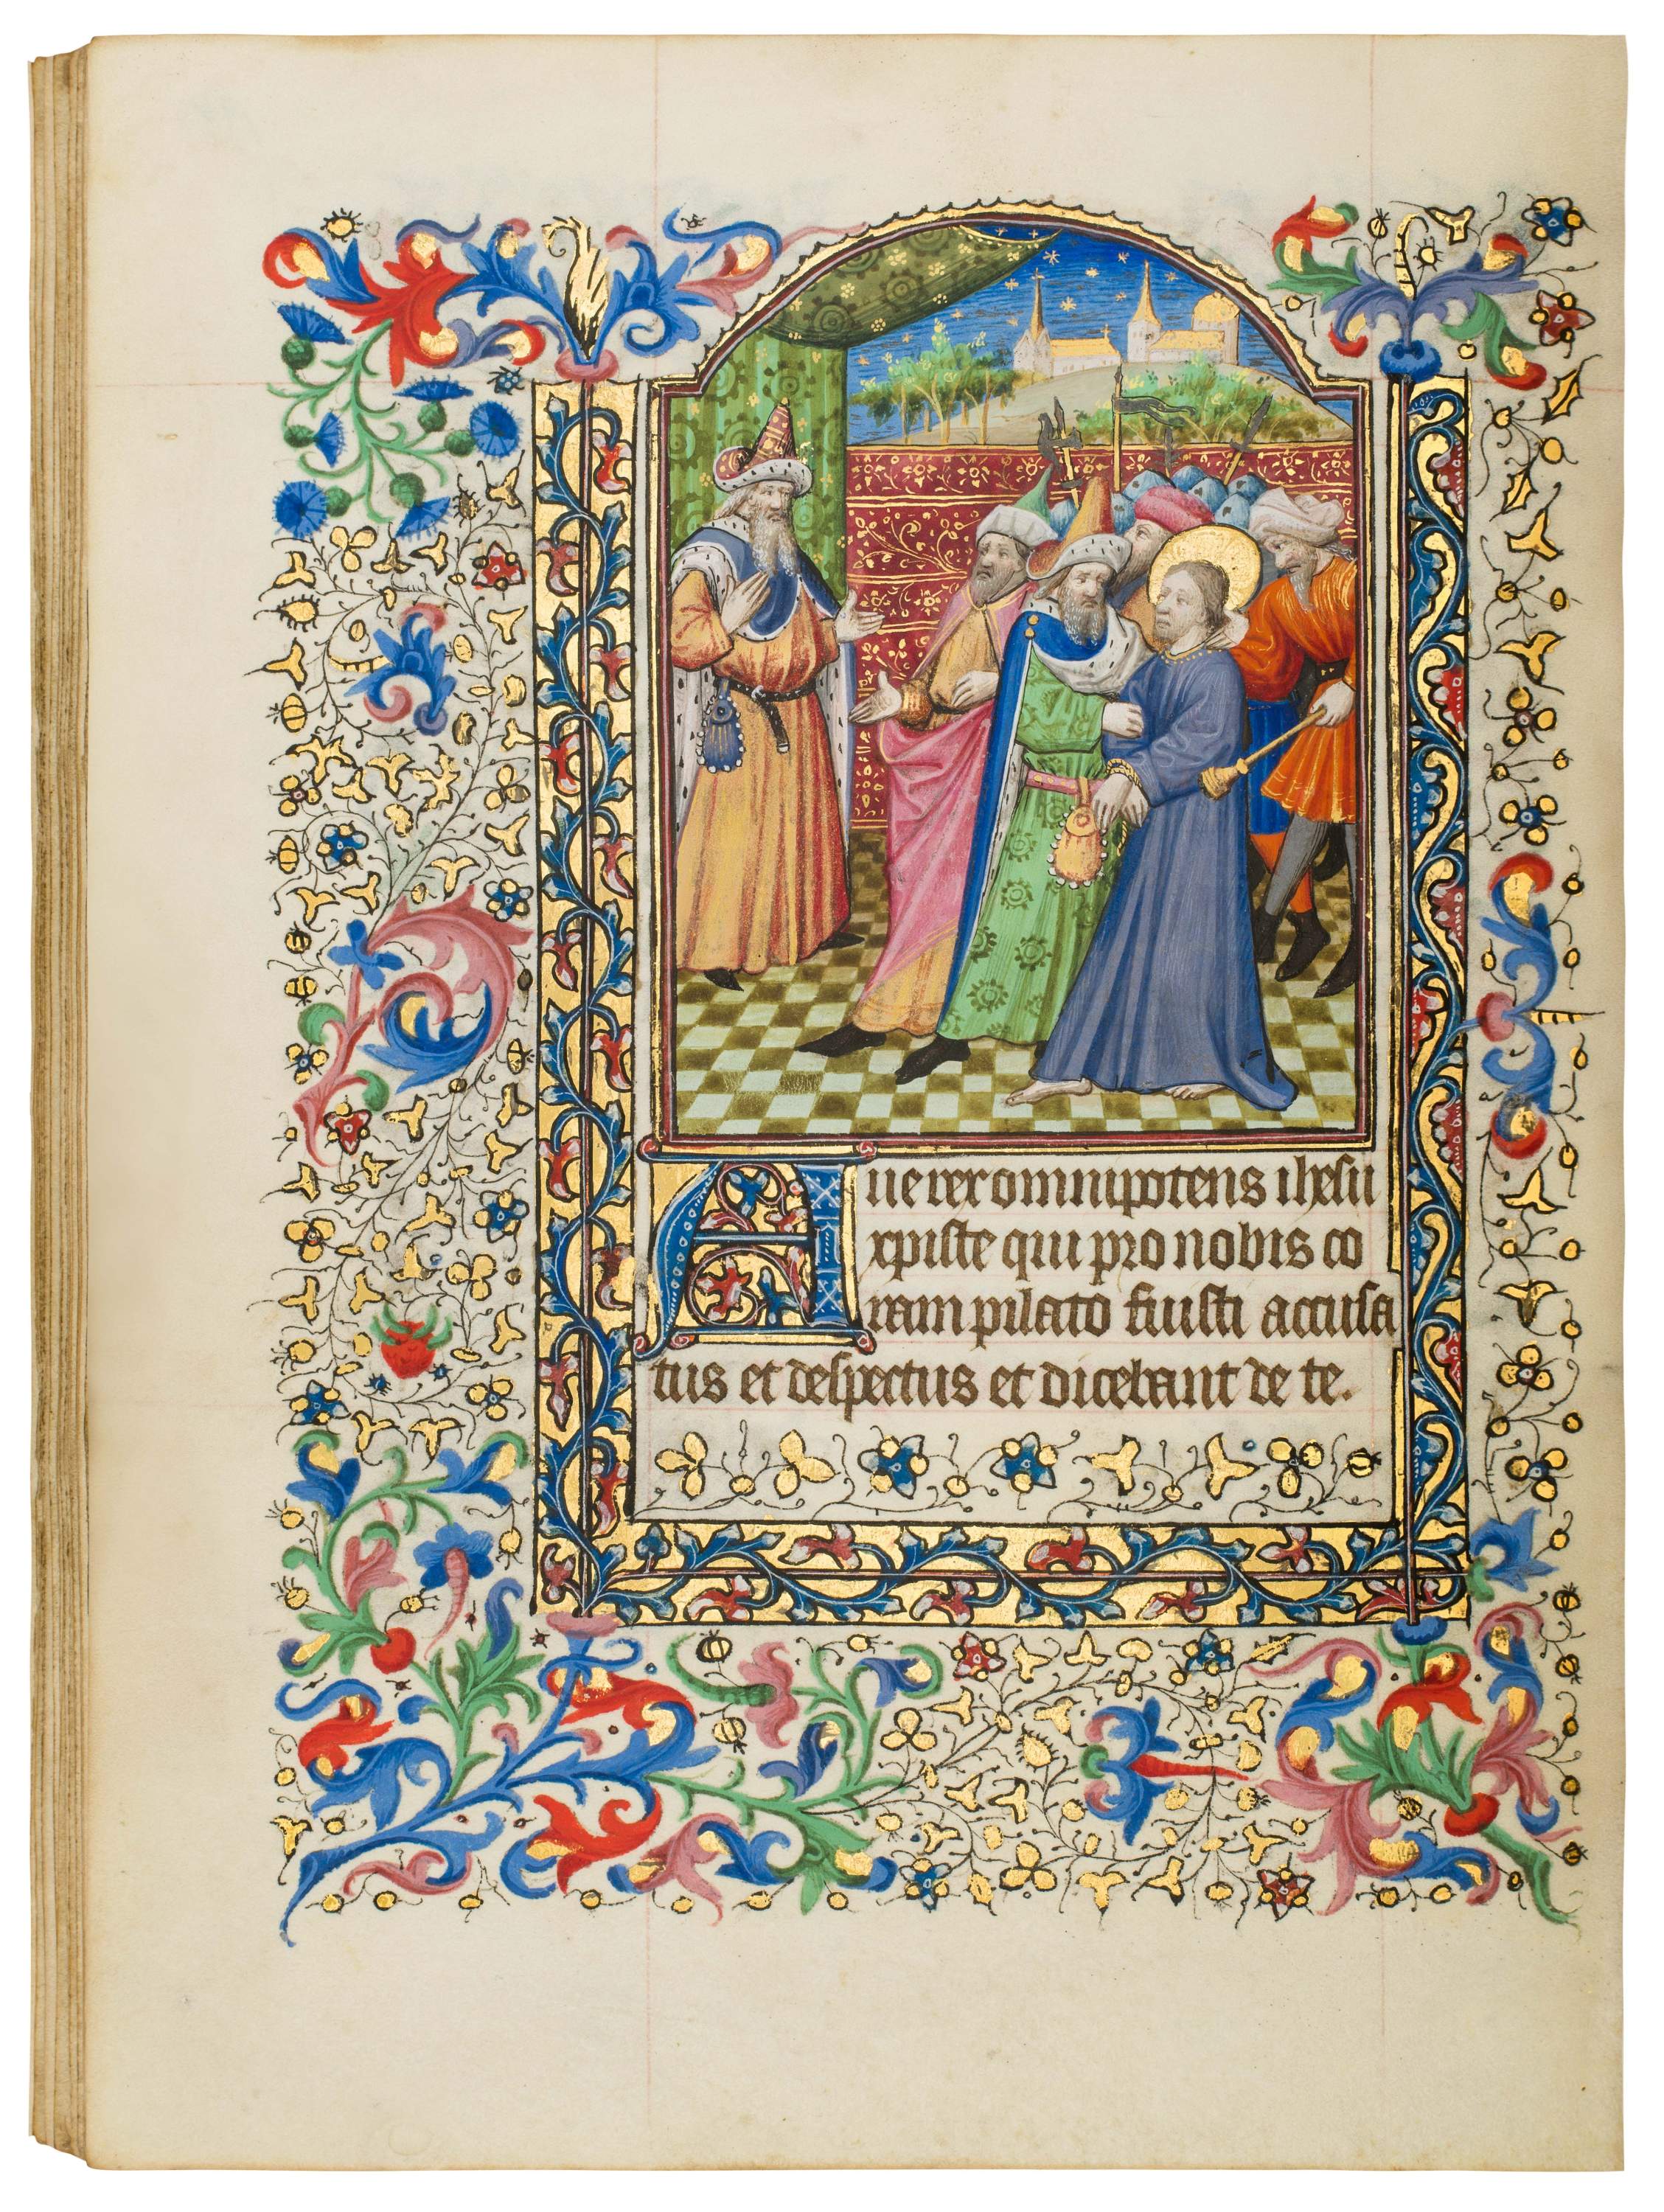 Aue rex omnipotens ihesu
xpiste qui pro nobis co
ram pilato fuisti accusa
tus et despectus et dicebant de te.